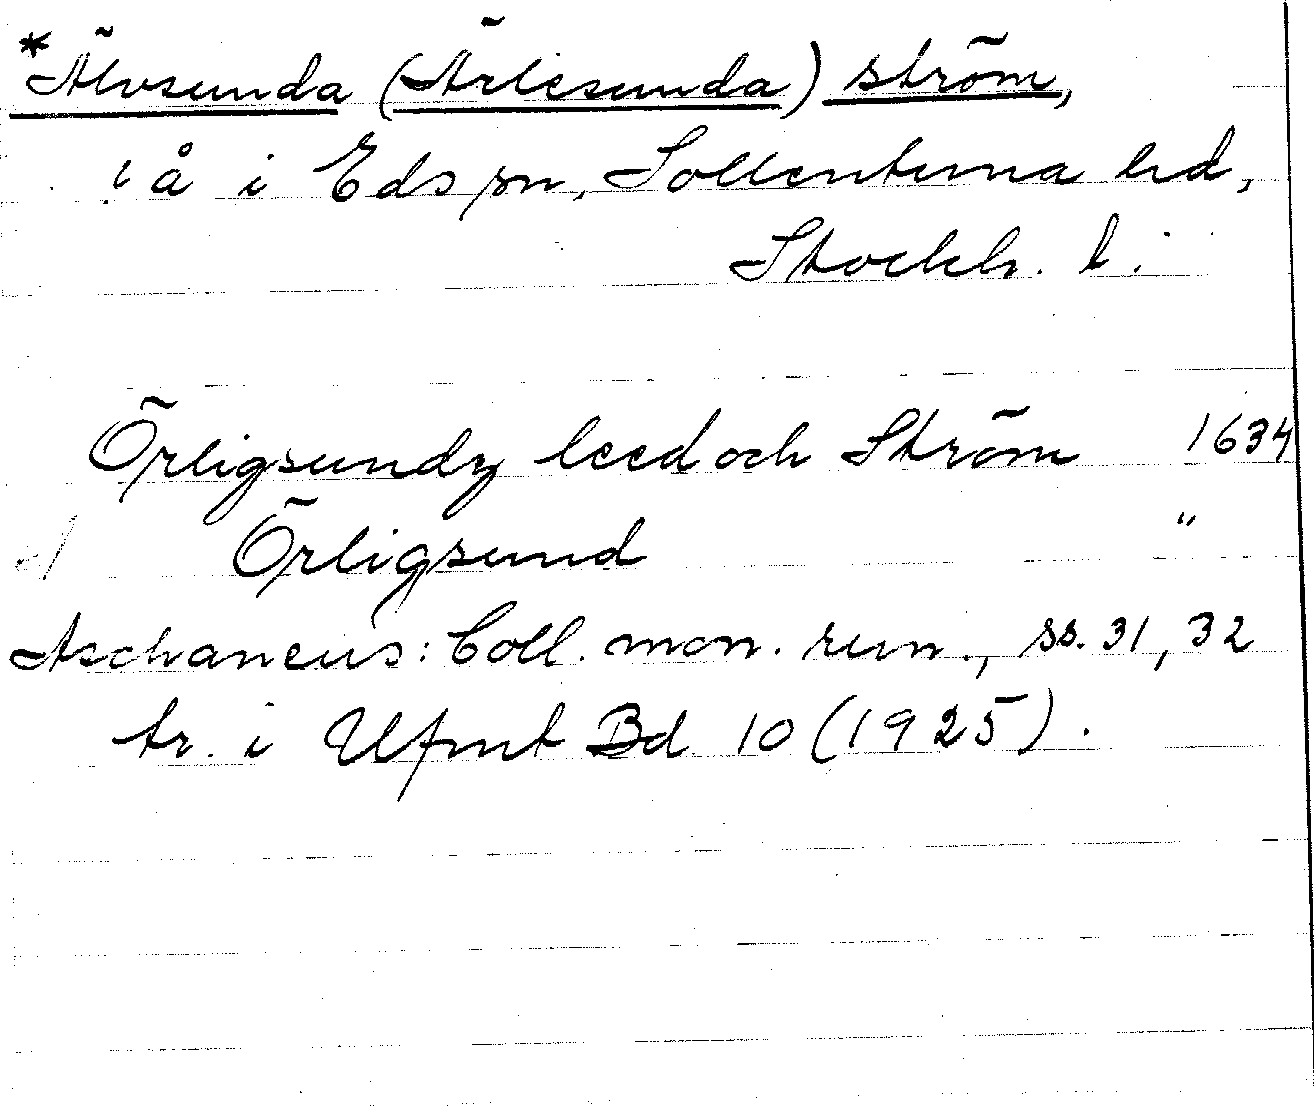 *Älvsunda (Ärlesunda) ström,
! å i Eds sn, Sollentuna hd,
Stockh. l.
Örligsundz leed och Ström 1634
Örligsund "
Aschaneus: Coll. mon. run., ss. 31, 32
tr. i Ufmt Bd 10 (1925).